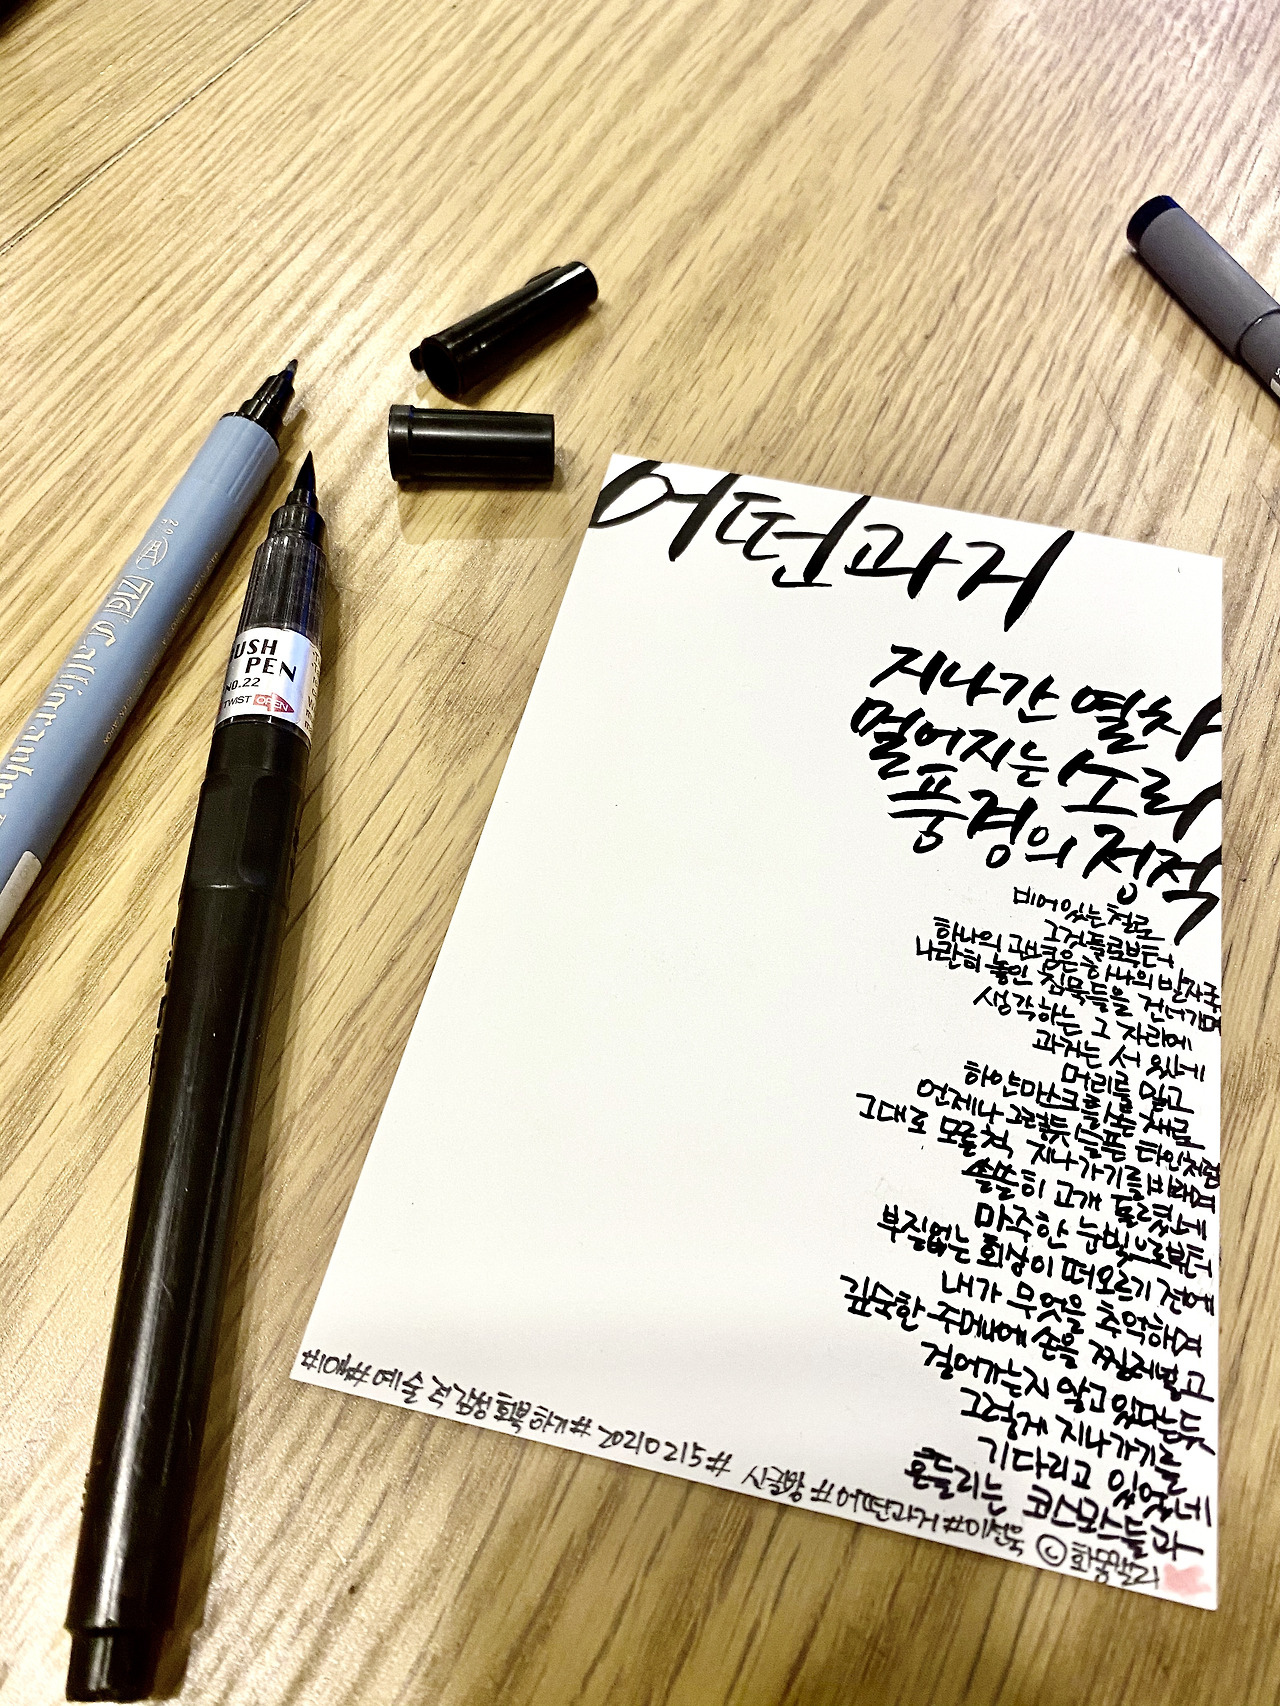 어떤과거
지나간 열차
멀어지는 소리
풍경의 정적
비어있는 철로
그것들로부터
하나의 고백은 하나의 발자국
나란히 놓인 침묵들을 건너가며
생각하는 그 자리에
과거는 서 있네
머리를 밀고
하얀마스크를 쓴 채로
언제나 그렇듯 슬픈 타인처럼
그대로 모올척 지나가기를 바래며
쓸쓸히 고개 돌렸네
마주한 눈빛으로부터
부질없는 회상이 떠오르기 전에
내가 무엇을 추억하며
깊숙한 주머니에 손을 찔러넣고
걸어가는지 알고 있다는듯
그렇게 지나가기를
기다리고 있었네
흔들리는 코스모스들과
#1일1#예술적감성회복하기#20210215# 시글짱 #어떤과거#이선욱 ©화몽캘리
ZIG Calligraphy
2.0
USH
PEN
NO.22
TWIST OPEN